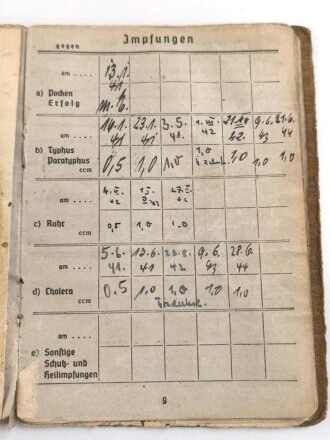 Impfungen
gegen
am .... 13.1.
41
a) Pocken
Erfolg m. E.
am .... 14.1. 23.1. 3.5. 1.III. 9.6. 21.6.
41 41 41. 42 42. 43 44
b) Typhus
Paratyphus 0,5 1,0 1,0 1,0 1,0 1,0 1,0
ccm
am ....
42 42 42
c) Ruhr 0,5 1,0 1.0
ccm
5.6. 13.6. 9.6. 28.6.
am .... 41. 41 42 43 44
d) Cholera 0.5 1.0 1,0 1,0 1.0
ccm
am ....
e) Sonstige
Schutz- und
Heilimpfungen
9